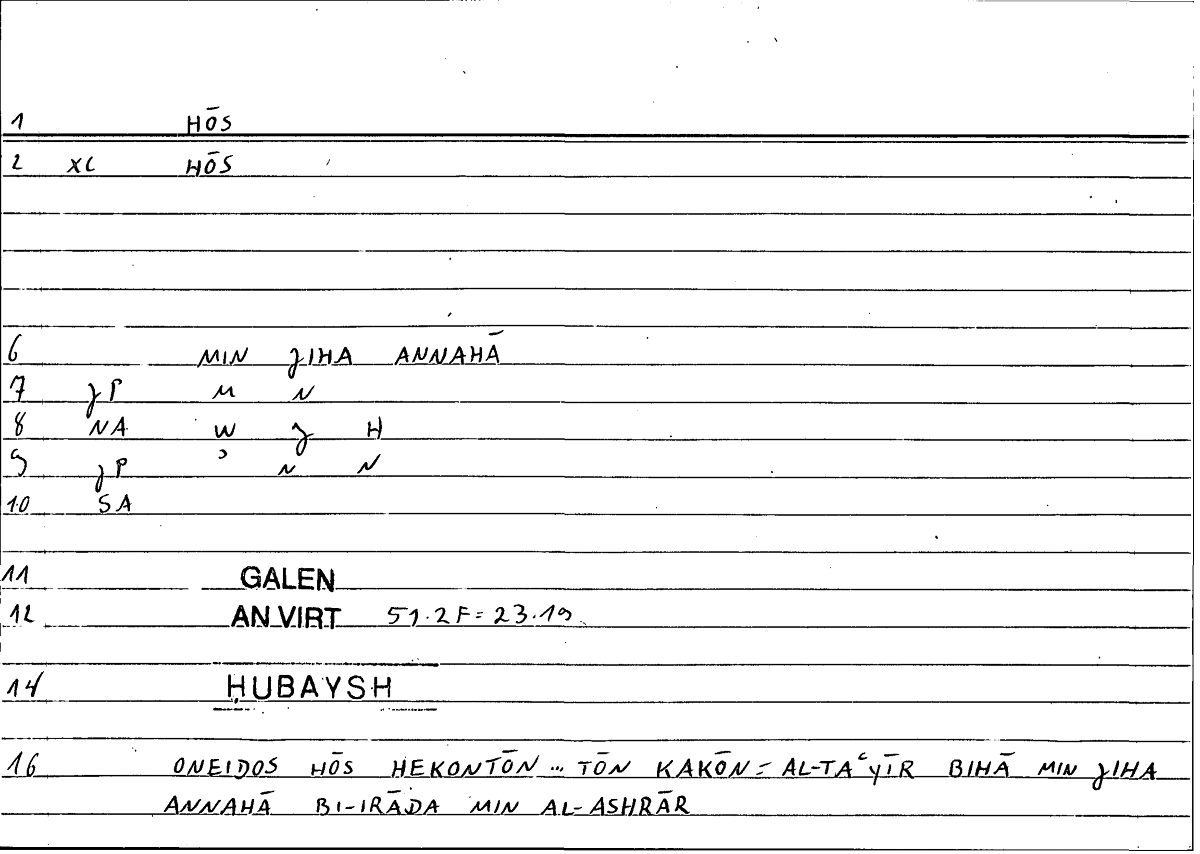 1 HŌS
2 XC HŌS
6 MIN JIHA ANNAHĀ
7 JP M N
8 NA W J H
9 JP ʾ N N
10 SA
11 GALEN
12 AN VIRT 51.2F=23.19
14 ḤUBAYSH
16 ONEIDOS HŌS HEKONTŌN … TŌN KAKŌN = AL-TAʿYĪR BIHĀ MIN JIHA
ANNAHĀ BI-IRĀDA MIN AL-ASHRĀR